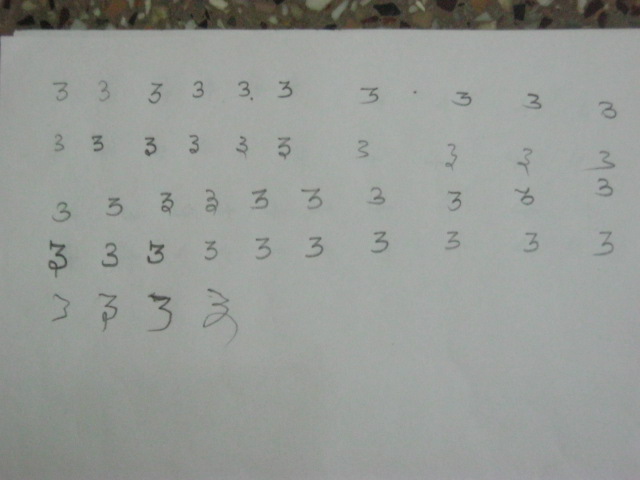 3 3 3 3 3. 3 3 3 3 3
3 3 3 3 3 3 3 3 3 3
3 3 3 3 3 3 3 3 3 3
3 3 3 3 3 3 3 3 3 3
3 3 3 3